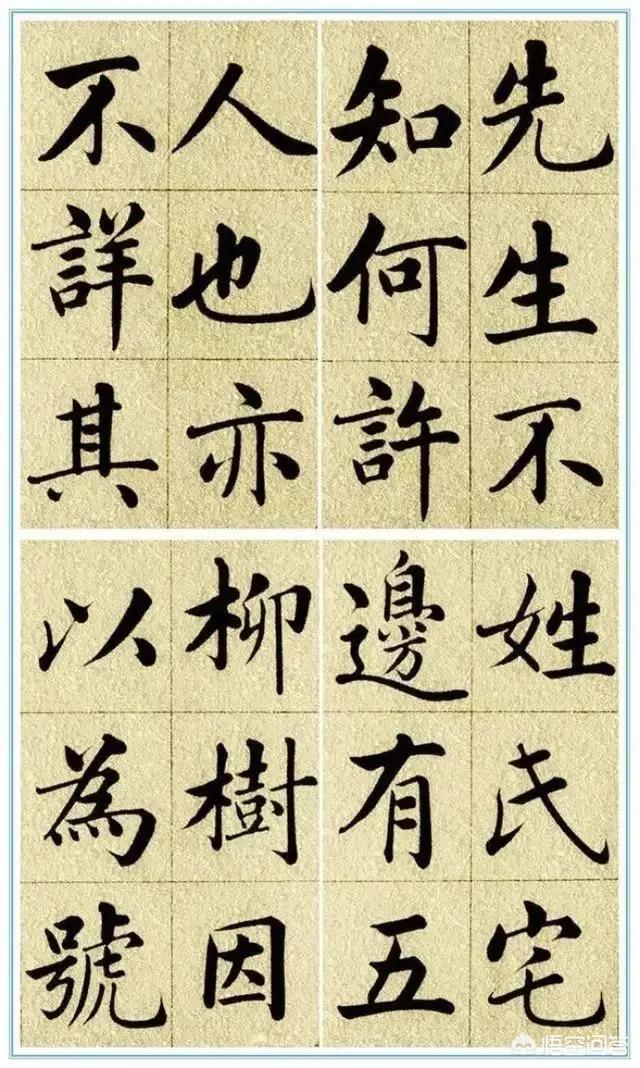 先生不
知何許
人也亦
不詳其
姓氏宅
邊有五
柳樹因
以為號
悟空问答